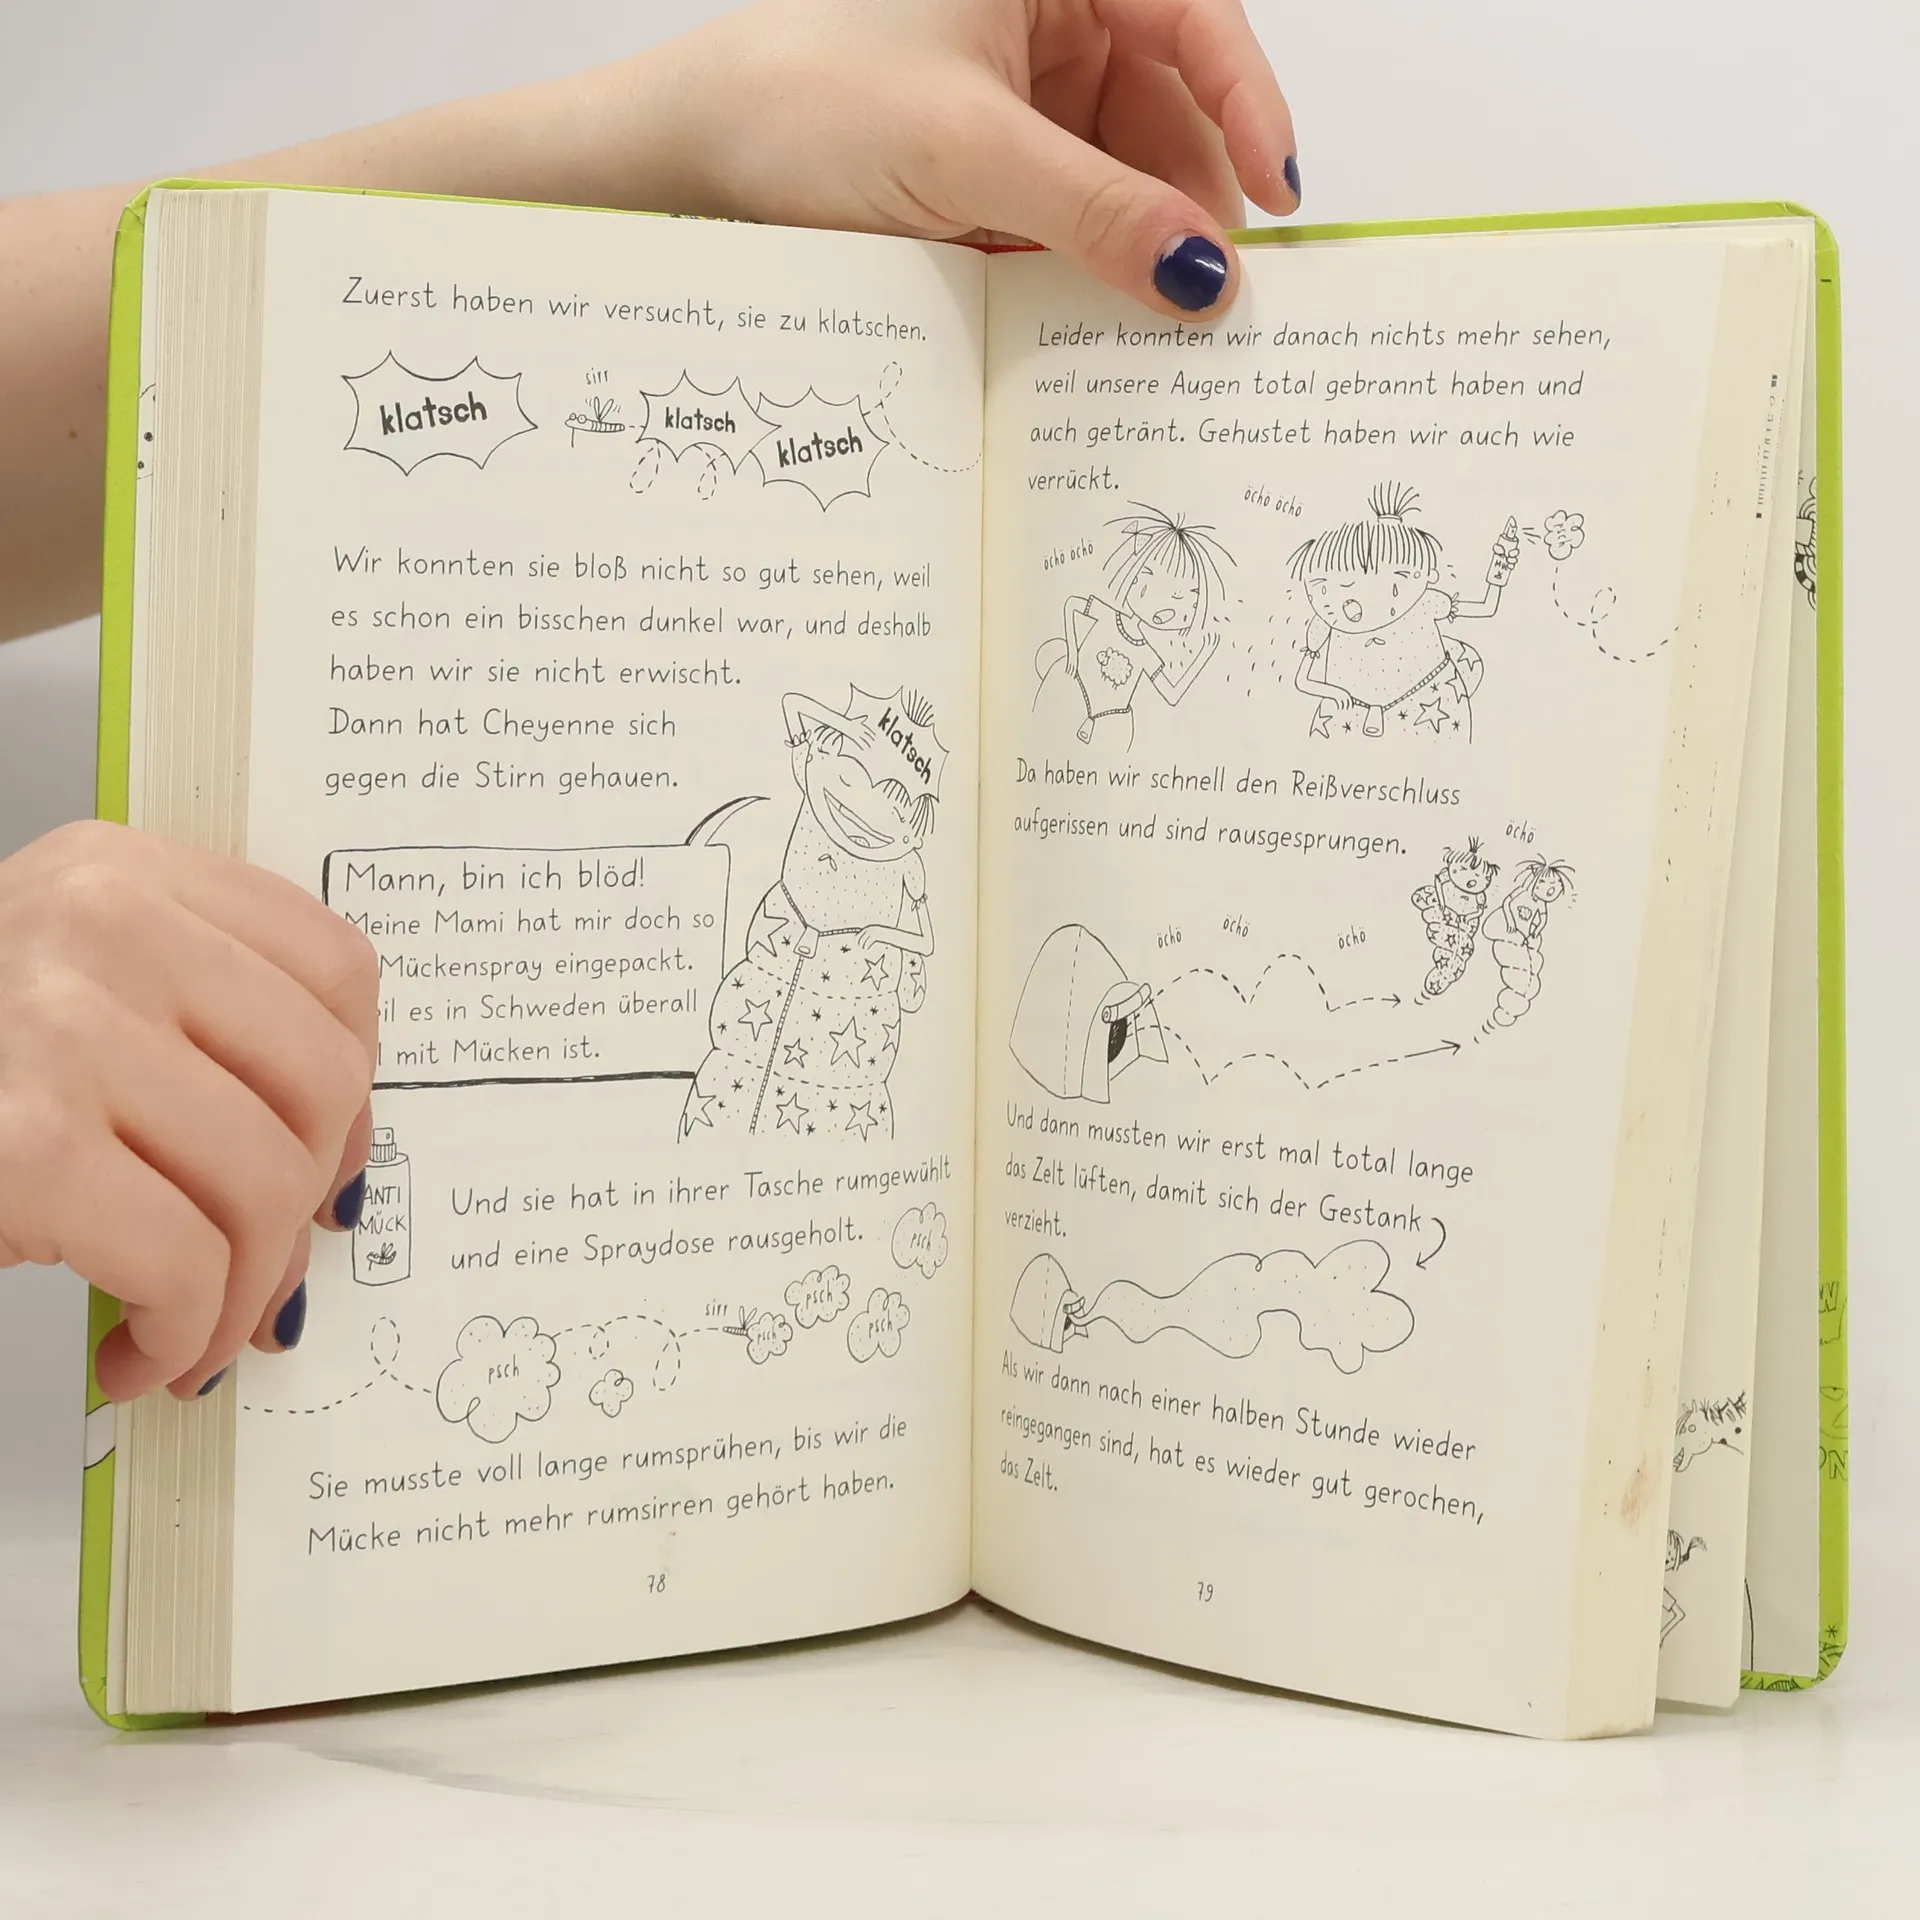 Zuerst haben wir versucht, sie zu klatschen.
klatsch
sirr
klatsch
klatsch
Wir konnten sie bloß nicht so gut sehen, weil
es schon ein bisschen dunkel war, und deshalb
haben wir sie nicht erwischt.
Dann hat Cheyenne sich
gegen die Stirn gehauen.
klatsch
Mann, bin ich blöd!
Meine Mami hat mir doch so
Mückenspray eingepackt.
es in Schweden überall
mit Mücken ist.
ANTI
MÜCK
Und sie hat in ihrer Tasche rumgewühlt
und eine Spraydose rausgeholt.
psch
psch
sirr
psch
psch
psch
Sie musste voll lange rumsprühen, bis wir die
Mücke nicht mehr rumsirren gehört haben.
78
Leider konnten wir danach nichts mehr sehen,
weil unsere Augen total gebrannt haben und
auch getränt. Gehustet haben wir auch wie
verrückt.
öchö öchö
öchö öchö
Da haben wir schnell den Reißverschluss
aufgerissen und sind rausgesprungen.
öchö
öchö
öchö
öchö
Und dann mussten wir erst mal total lange
das Zelt lüften, damit sich der Gestank
verzieht.
Als wir dann nach einer halben Stunde wieder
reingegangen sind, hat es wieder gut gerochen,
das Zelt.
79